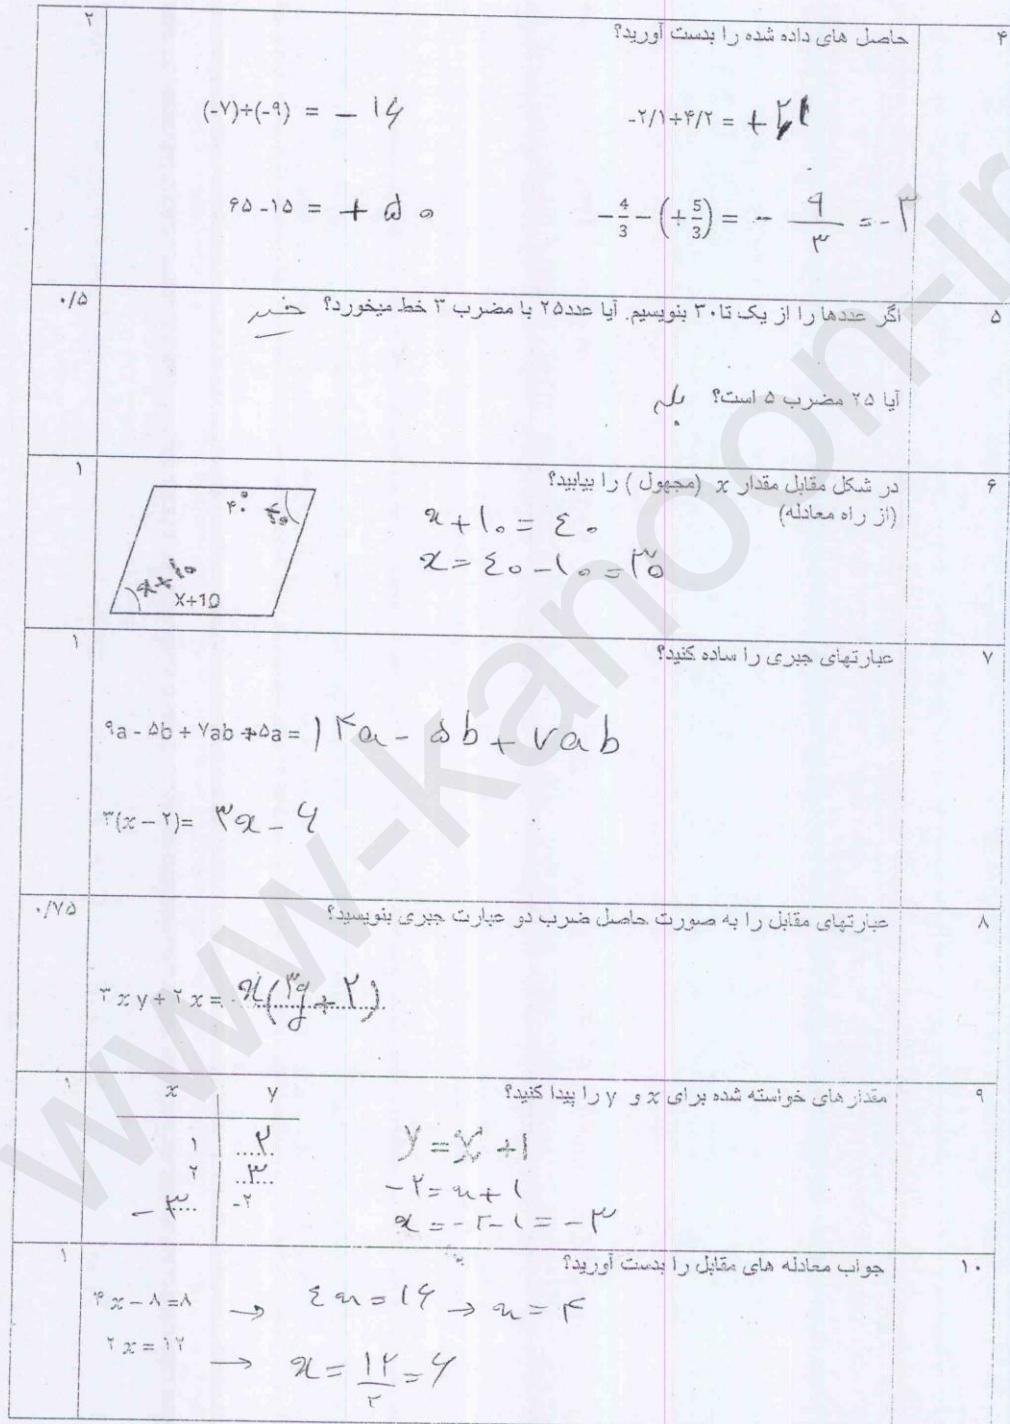 ۴ حاصل های داده شده را بدست آورید؟ ۲
-۲/۱+۴/۲ = +۲/۱ (-۷)+(-۹) = -۱۶
-4/3 - (+5/3) = - ۹/۳ = -۳ ۶۵-۱۵ = +۵۰
۵ اگر عددها را از یک تا۳۰ بنویسیم. آیا عدد۲۵ با مضرب ۳ خط میخورد؟ خیر ۰/۵
آیا ۲۵ مضرب ۵ است؟ بله
۶ در شکل مقابل مقدار x (مجهول) را بیابید؟ ۱
(از راه معادله)
x+۱۰=۴۰
x=۴۰-۱۰=۳۰
۴۰° ۴۰
x+۱۰
X+10
۷ عبارتهای جبری را ساده کنید؟ ۱
۹a - ۵b + ۷ab +۵a = ۱۴a - ۵b + ۷ab
۳(x – ۲)= ۳x - ۶
۸ عبارتهای مقابل را به صورت حاصل ضرب دو عبارت جبری بنویسید؟ ۰/۷۵
۳ x y + ۲ x = x(۳y+۲)
۹ مقدار های خواسته شده برای x و y را پیدا کنید؟ ۱
x y
۱ ۲
۲ ۳
-۳ -۲
y=x+1
-۲=x+۱
x=-۲-۱=-۳
۱۰ جواب معادله های مقابل را بدست آورید؟ ۱
۴ x – ۸ =۸ → ۴x=۱۶ → x=۴
۲ x = ۱۲ → x= ۱۲/۲ =۶
www-kanoon-ir